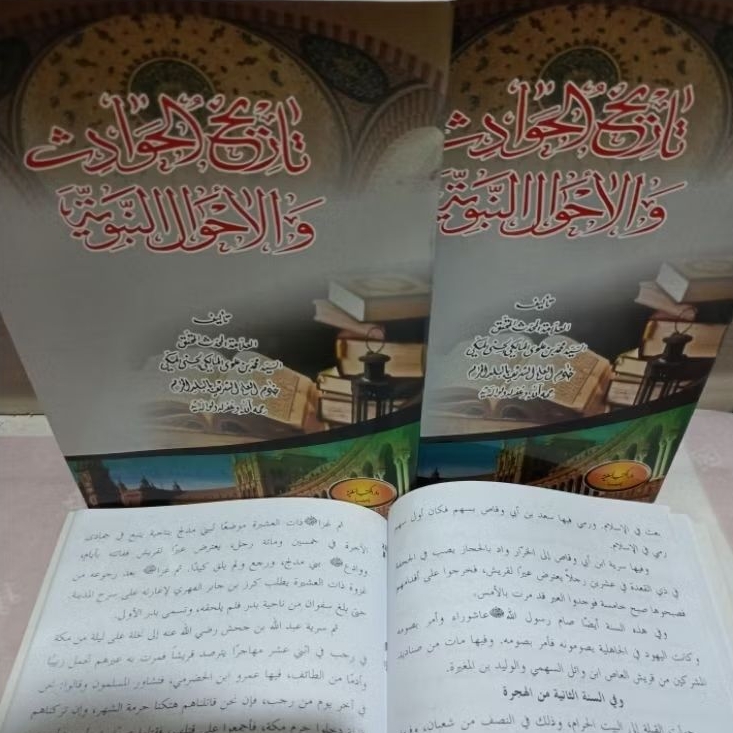 تاريخ الحوادث
والأحوال النبوية
تأليف
السيد محمد بن علوي المالكي الحسني المكي
خادم العلم الشريف بالبلد الحرام
تاريخ الحوادث
والأحوال النبوية
تأليف
السيد محمد بن علوي المالكي الحسني المكي
خادم العلم الشريف بالبلد الحرام
بعث في الإسلام. ورمي فيها سعد بن أبي وقاص بسهم فكان أول سهم
رمي في الإسلام.
وفيها سرية ابن أبي وقاص إلى الخرّار واد بالحجاز يصب في الجحفة
في ذي القعدة في عشرين رجلاً يعترض عيرًا لقريش، فخرجوا على أقدامهم
فصبحوها صبح خامسة فوجدوا العير قد مرت بالأمس.
وفي هذه السنة أيضًا صام رسول الله ﷺ عاشوراء وأمر بصومه
وكانت اليهود في الجاهلية يصومونه فأمر بصومه. وفيها مات من صناديد
المشركين من قريش العاص ابن وائل السهمي والوليد بن المغيرة.
وفي السنة الثانية من الهجرة
حولت القبلة إلى البيت الحرام، وذلك في النصف من شعبان،
ثم غزا ﷺ ذات العشيرة موضعًا لبني مدلج بناحية ينبع في جمادى
الآخرة في خمسين ومائة رجل، يعترض عيرًا لقريش ففاتته بأيام،
ووادع ﷺ بني مدلج، ورجع ولم يلق كيدًا. ثم غزا ﷺ بعد رجوعه من
غزوة ذات العشيرة يطلب كرز بن جابر الفهري لإغارته على سرح المدينة.
حتى بلغ سفوان من ناحية بدر فلم يلحقه، وتسمى بدر الأولى.
ثم سرية عبد الله بن جحش رضي الله عنه إلى نخلة على ليلة من مكة
في رجب في اثني عشر مهاجرًا يترصد قريشًا فمرت به عيرهم تحمل زبيبًا
وأدمًا من الطائف، فيها عمرو ابن الحضرمي، فتشاور المسلمون وقالوا: نحن
في آخر يوم من رجب، فإن نحن قاتلناهم هتكنا حرمة الشهر، وإن تركناهم
دخلوا حرم مكة، فأجمعوا على قتلهم،